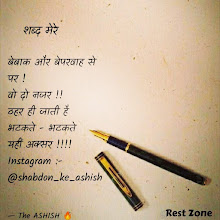 शब्द मेरे
बेबाक और बेपरवाह से
पर !
वो दो नजर !!
ठहर ही जाती है
भटकते - भटकते
यही अक्सर !!!!
Instagram :-
@shabdon_ke_ashish
Rest Zone
— The ASHISH 🔥